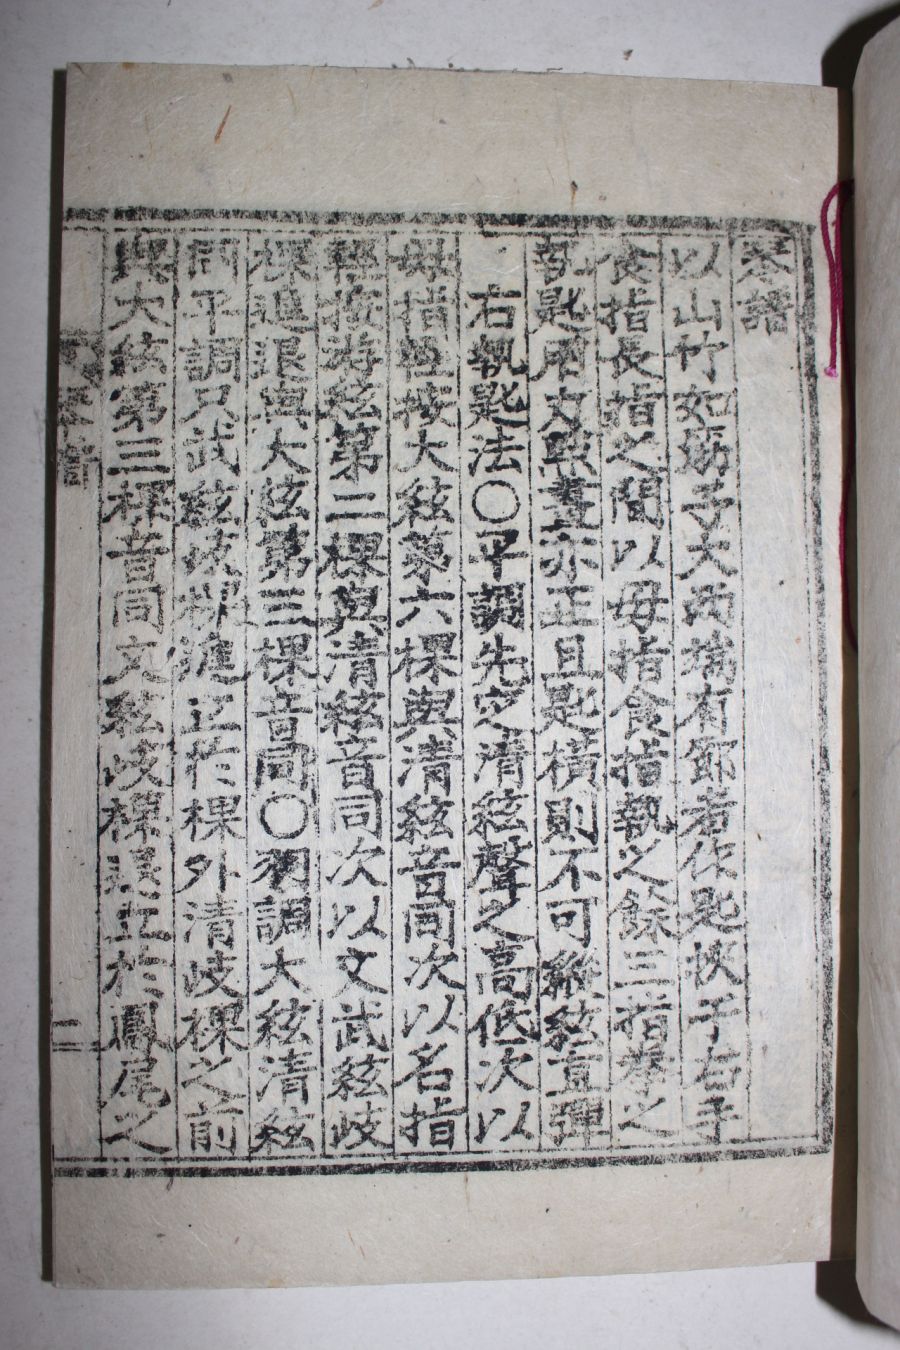 琴譜
以山竹如筯子大兩端有節者作匙挾于右手
食指長指之間以母指食指執之餘三指拳之
執匙用文點晝亦正且匙橫則不可緣絃直彈
右執匙法〇平調先定清絃聲之高低次以
母指輕按大絃第六棵與清絃音同次以名指
輕按游絃第二棵與清絃音同次以文武絃歧
棵進退與大絃第三棵音同〇羽調大絃清絃
同平調只武絃歧棵進立於棵外清歧棵之前
與大絃第三棵音同文絃歧棵退立於鳳尾之
琴譜
二